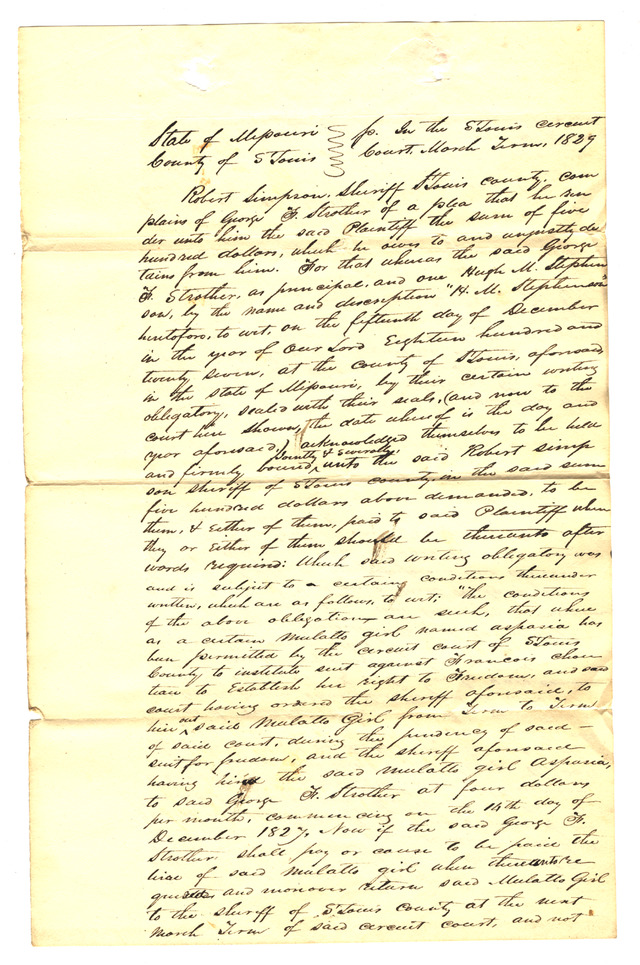 State of Missouri } ss. In the St Louis circuit
County of St Louis } Court, March Term, 1829
Robert Simpson, Sheriff St Louis county, com
plains of George F. Strother of a plea that he ren
der unto him the said Plaintiff the sum of five
hundred dollars, which he owes to and unjustly de
tains from him. For that whereas the said George
F. Strother, as principal, and one Hugh M. Stephen
son, by the name and description "H. M. Stephenson"
heretofore, to wit, on the fifteenth day of December
in the year of Our Lord Eighteen hundred and
twenty seven, at the county of St Louis, aforesaid,
in the state of Missouri, by their certain writing
obligatory, sealed with their seals, (and now to the
court here shown, the date whereof is the day and
year aforesaid,) acknowledged themselves to be held
and firmly bound, jointly & severally unto the said Robert Simp
son sheriff of St Louis county, in the said sum
five hundred dollars above demanded, to be
them, & Either of them, paid to said Plaintiff when
they or Either of them should be thereunto after
words required: Which said writing obligatory was
and is subject to a certain conditions thereunder
written, which are as follows, to wit; "the conditions
of the above obligation are such, that where
as a certain Mulatto girl named aspasia has
been permitted by the circuit court of St Louis
County to institute suit against Francois chou
teau to Establish her right to Freedom, and said
court having ordered the sheriff aforesaid, to
hire out said Mulatto Girl from Term to Term
of said court, during the pendency of said
suit for freedom, and the sheriff aforesaid
having hired the said mulatto girl Aspasia,
to said George F. Strother at four dollars
per month, commencing on the 14th day of
December 1827, Now if the said George F.
Strother shall pay or cause to be paid the
hire of said Mulatto girl when thereunto re
quested and moreover return said Mulatto Girl
to the sheriff of St Louis County at the next
March Term of said circuit court, and not